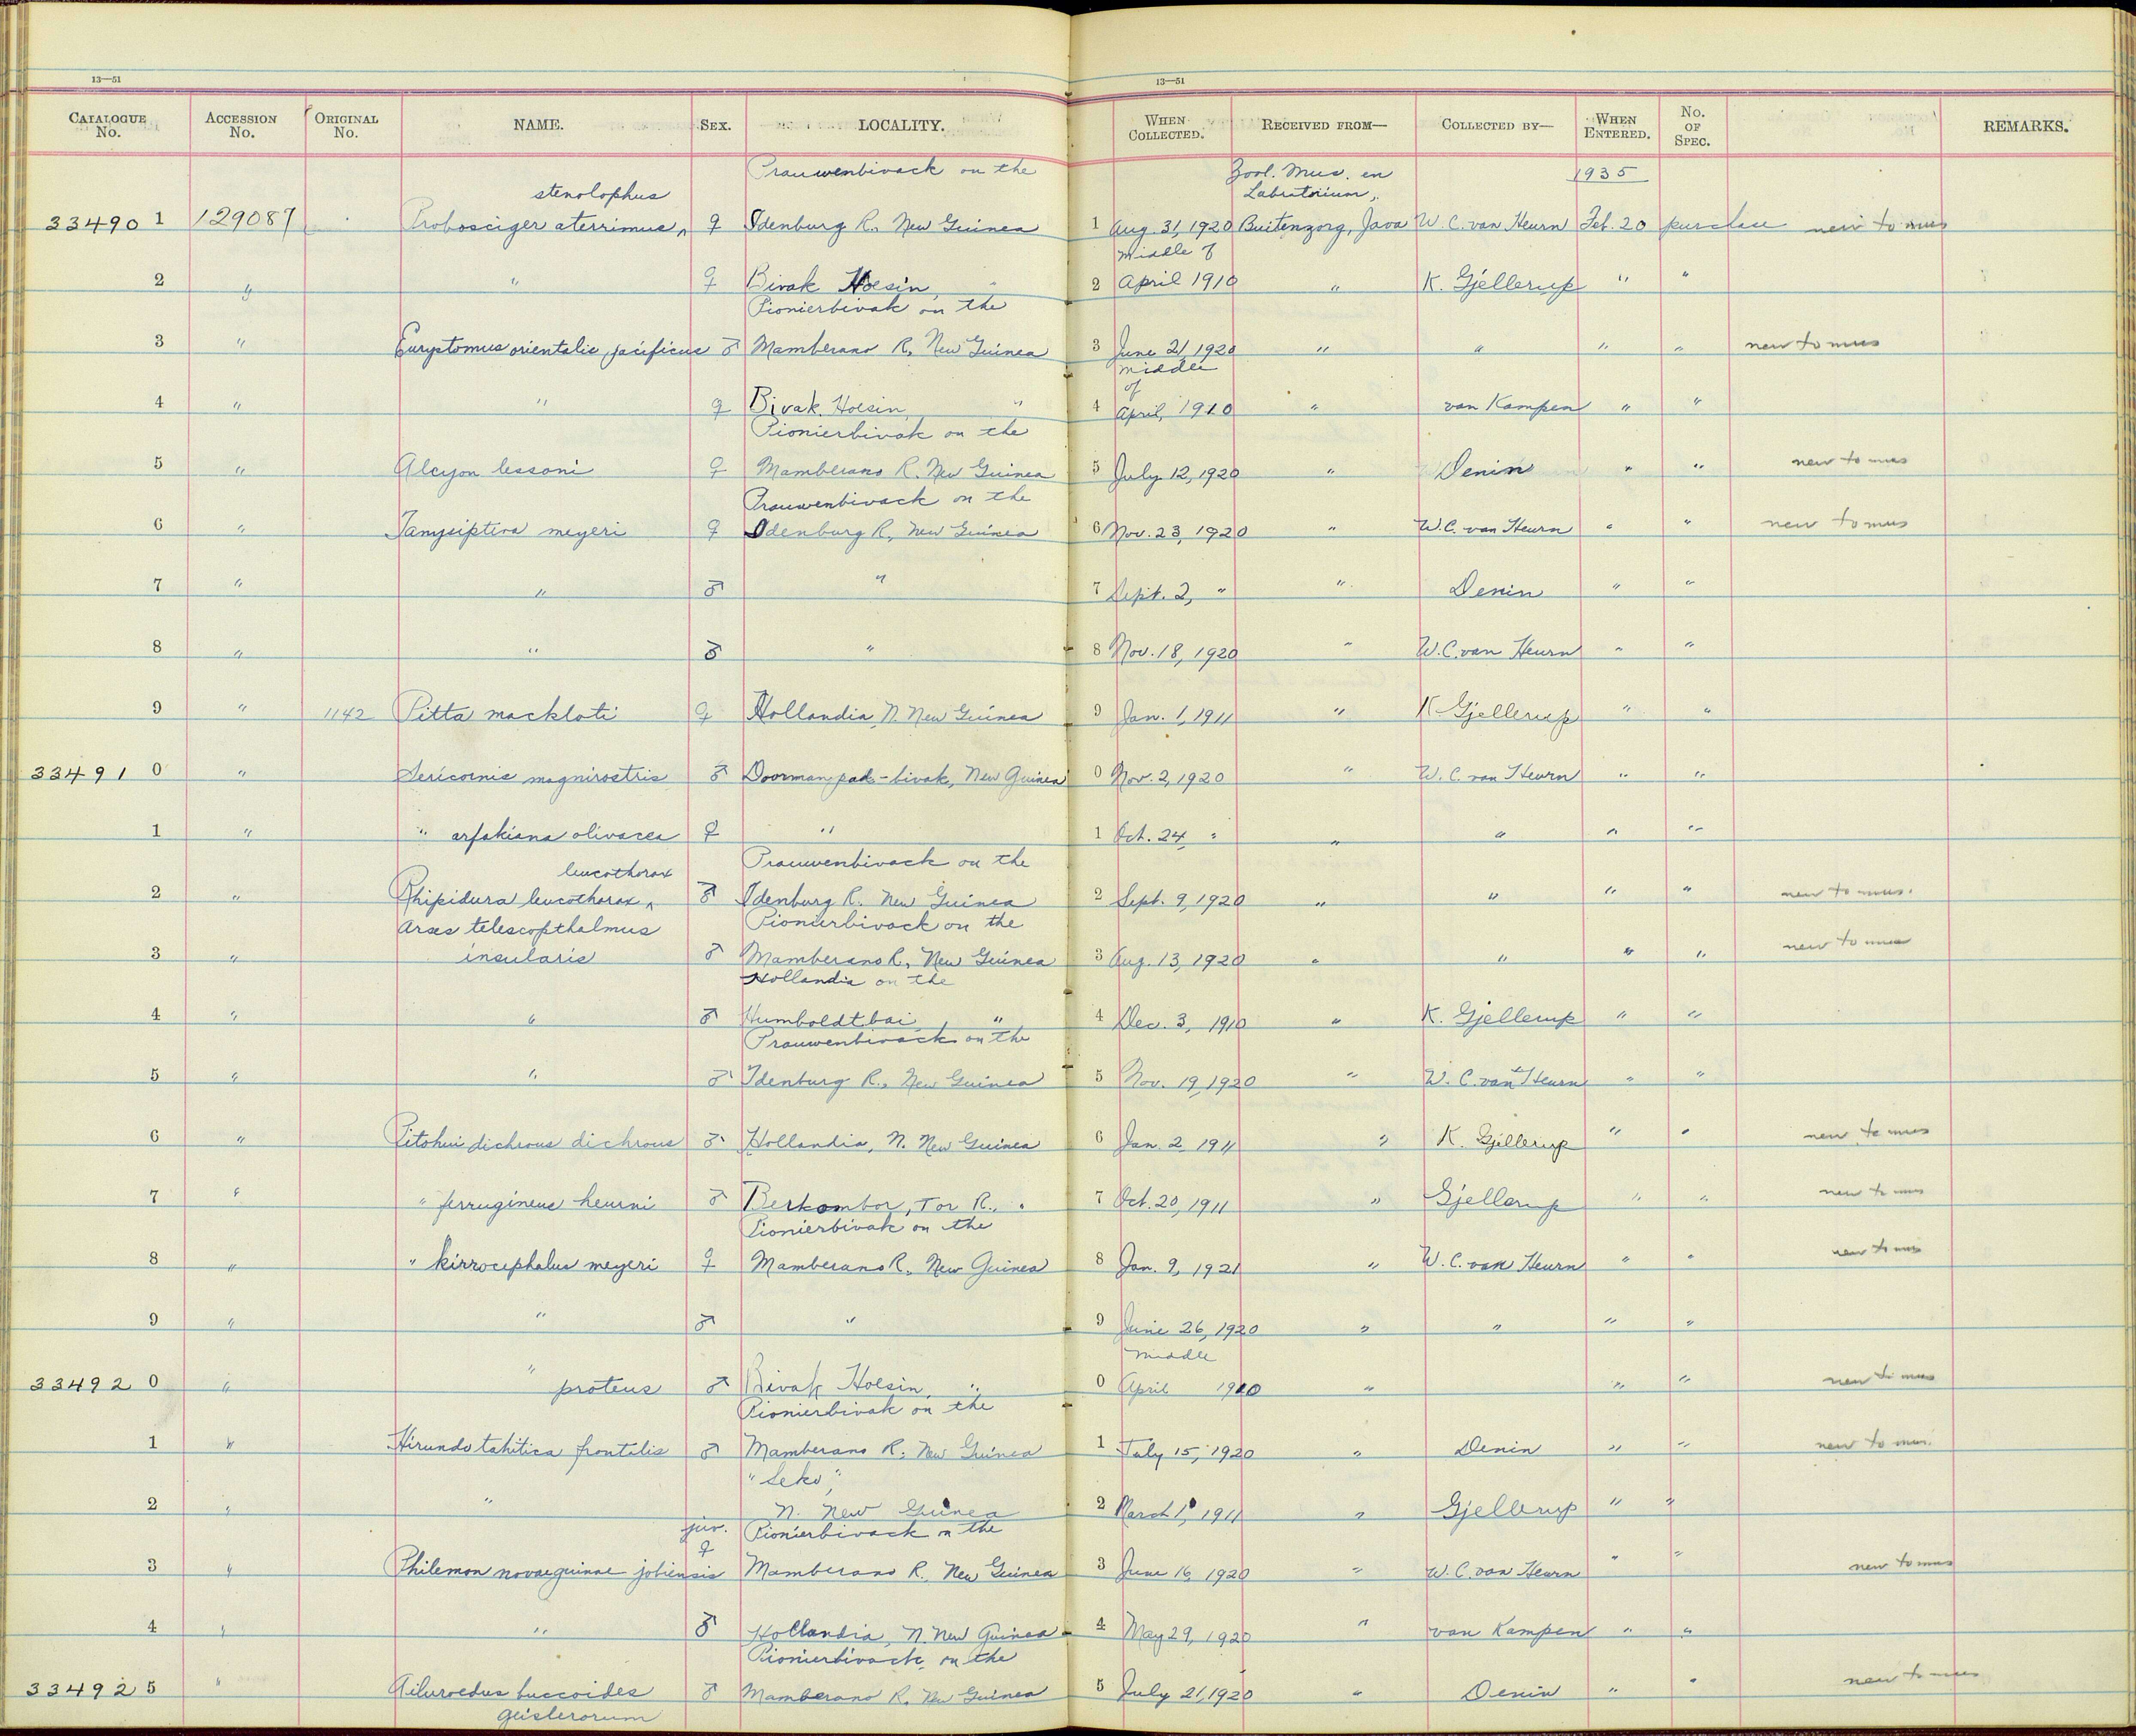 13—51
13—51
CATALOGUE No. ACCESSION No. ORIGINAL No. NAME. SEX. LOCALITY. WHEN COLLECTED. RECEIVED FROM— COLLECTED BY— WHEN ENTERED. No. OF SPEC. REMARKS.
Prauwenbivack on the Zool. Mus. en 1935
stenolophus Labratorium,
33490 1 129087 Probosciger aterrimus ^ ♀ Idenburg R. New Guinea 1 Aug. 31, 1920 Buitenzorg, Java W. C. van Heurn Feb. 20 purchase new to mus
Middle of
2 " " ♀ Bivak Hoesin, " 2 April 1910 " K. Gjellerup " "
Pionierbivak on the
3 " Euryptomus orientalis pacificus ♂ Mamberano R, New Guinea 3 June 21, 1920 " " " " new to mus
Middle
of
4 " " ♀ Bivak Hoesin, " 4 April, 1910 " van Kampen " "
Pionierbivak on the
5 " Alcyon lessoni ♀ Mamberano R. New Guinea 5 July 12, 1920 " Denin " " new to mus
Prauwenbivack on the
6 " Tanysiptera meyeri ♀ Idenburg R, New Guinea 6 Nov. 23, 1920 " W. C. van Heurn " " new to mus
7 " " ♂ " 7 Sept. 2, " " Denin " "
8 " " ♂ " 8 Nov. 18, 1920 " W. C. van Heurn " "
9 " 1142 Pitta mackloti ♀ Hollandia, N. New Guinea 9 Jan. 1, 1911 " K Gjellerup " "
33491 0 " Sericornis magnirostris ♂ Doormanpad-bivak, New Guinea 0 Nov. 2, 1920 " W. C. van Heurn " "
1 " " arfakiana olivacea ♀ " 1 Oct. 24 " " " " "
leucothorax Prauwenbivack on the
2 " Rhipidura leucothorax ^ ♂ Idenburg R. New Guinea 2 Sept. 9, 1920 " " " " new to mus.
Arses telescopthalmus Pionierbivack on the
3 " insularis ♂ Mamberano R, New Guinea 3 Aug. 13, 1920 " " " " new to mus
Hollandia on the
4 " " ♂ Humboldtbai, " 4 Dec. 3, 1910 " K. Gjellerup " "
Prauwenbivack on the
5 " " ♂ Idenburg R., New Guinea 5 Nov. 19, 1920 " W. C. van Heurn " "
6 " Pitohui dichrous dichrous ♂ Hollandia, N. New Guinea 6 Jan. 2, 1911 " K. Gjellerup " " new to mus
7 " " ferrugineus heurni ♂ Berkombor, Tor R., " 7 Oct. 20, 1911 " Gjellerup " " new to mus
Pionierbivak on the
8 " " kirrocephalus meyeri ♀ Mamberano R, New Guinea 8 Jan. 9, 1921 " W. C. van Heurn " " new to mus
9 " " ♂ " 9 June 26, 1920 " " " "
Middle
33492 0 " " proteus ♂ Bivak Hoesin, " 0 April 1910 " " " new to mus
Pionierbivak on the
1 " Hirundo tahitica frontalis ♂ Mamberano R, New Guinea 1 July 15, 1920 " Denin " " new to mus.
"Seko",
2 " " N. New Guinea 2 March 1, 1911 " Gjellerup " "
juv. Pionierbivack on the
♀
3 " Philemon novaeguinae jobiensis Mamberano R. New Guinea 3 June 16, 1920 " W. C. van Heurn " " new to mus
4 " " ♂ Hollandia, N. New Guinea 4 May 29, 1920 " van Kampen " "
Pionierbivack on the
33492 5 " Ailuroedus buccoides ♂ Mamberano R. New Guinea 5 July 21, 1920 " Denin " " new to mus
geislerorum